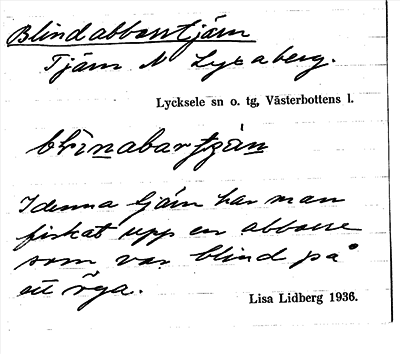 Blindabborrtjärn
Tjärn N Lycaberg.
Lycksele sn o. tg, Västerbottens l.
I denna tjärn har man
fiskat upp en abborre
som var blind på
ett öga.
Lisa Lidberg 1936.